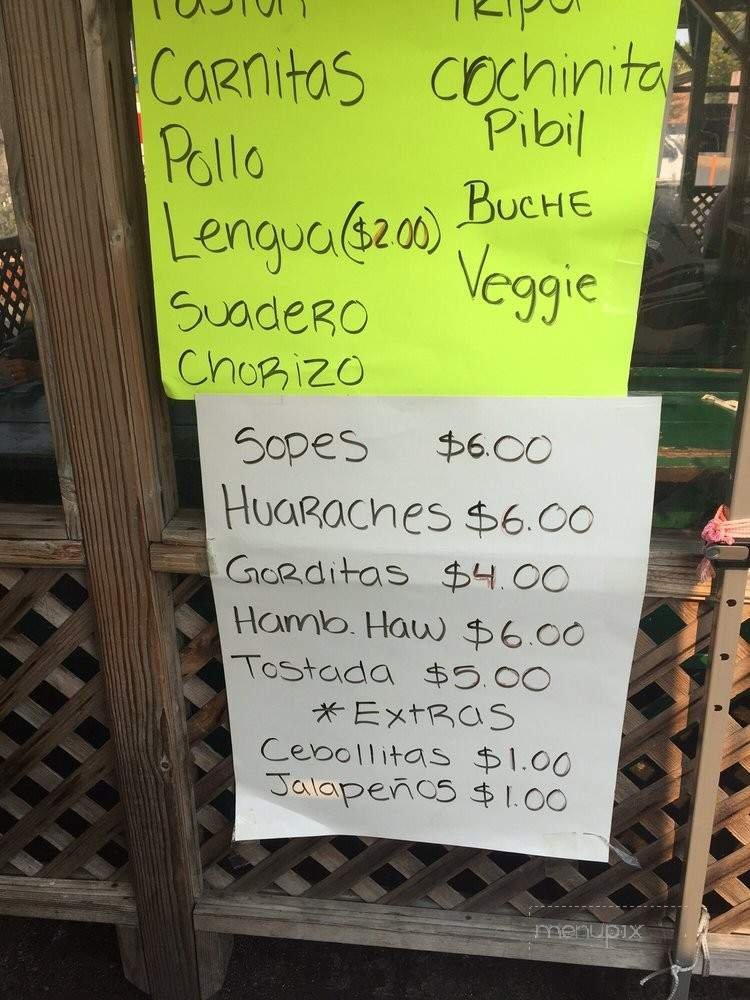 Pastor Tripa
Carnitas Cochinita
Pibil
Pollo
Buche
Lengua ($2.00)
Veggie
Suadero
Chorizo
Sopes $6.00
Huaraches $6.00
Gorditas $4.00
Hamb. Haw $6.00
Tostada $5.00
* Extras
Cebollitas $1.00
Jalapeños $1.00
menupix